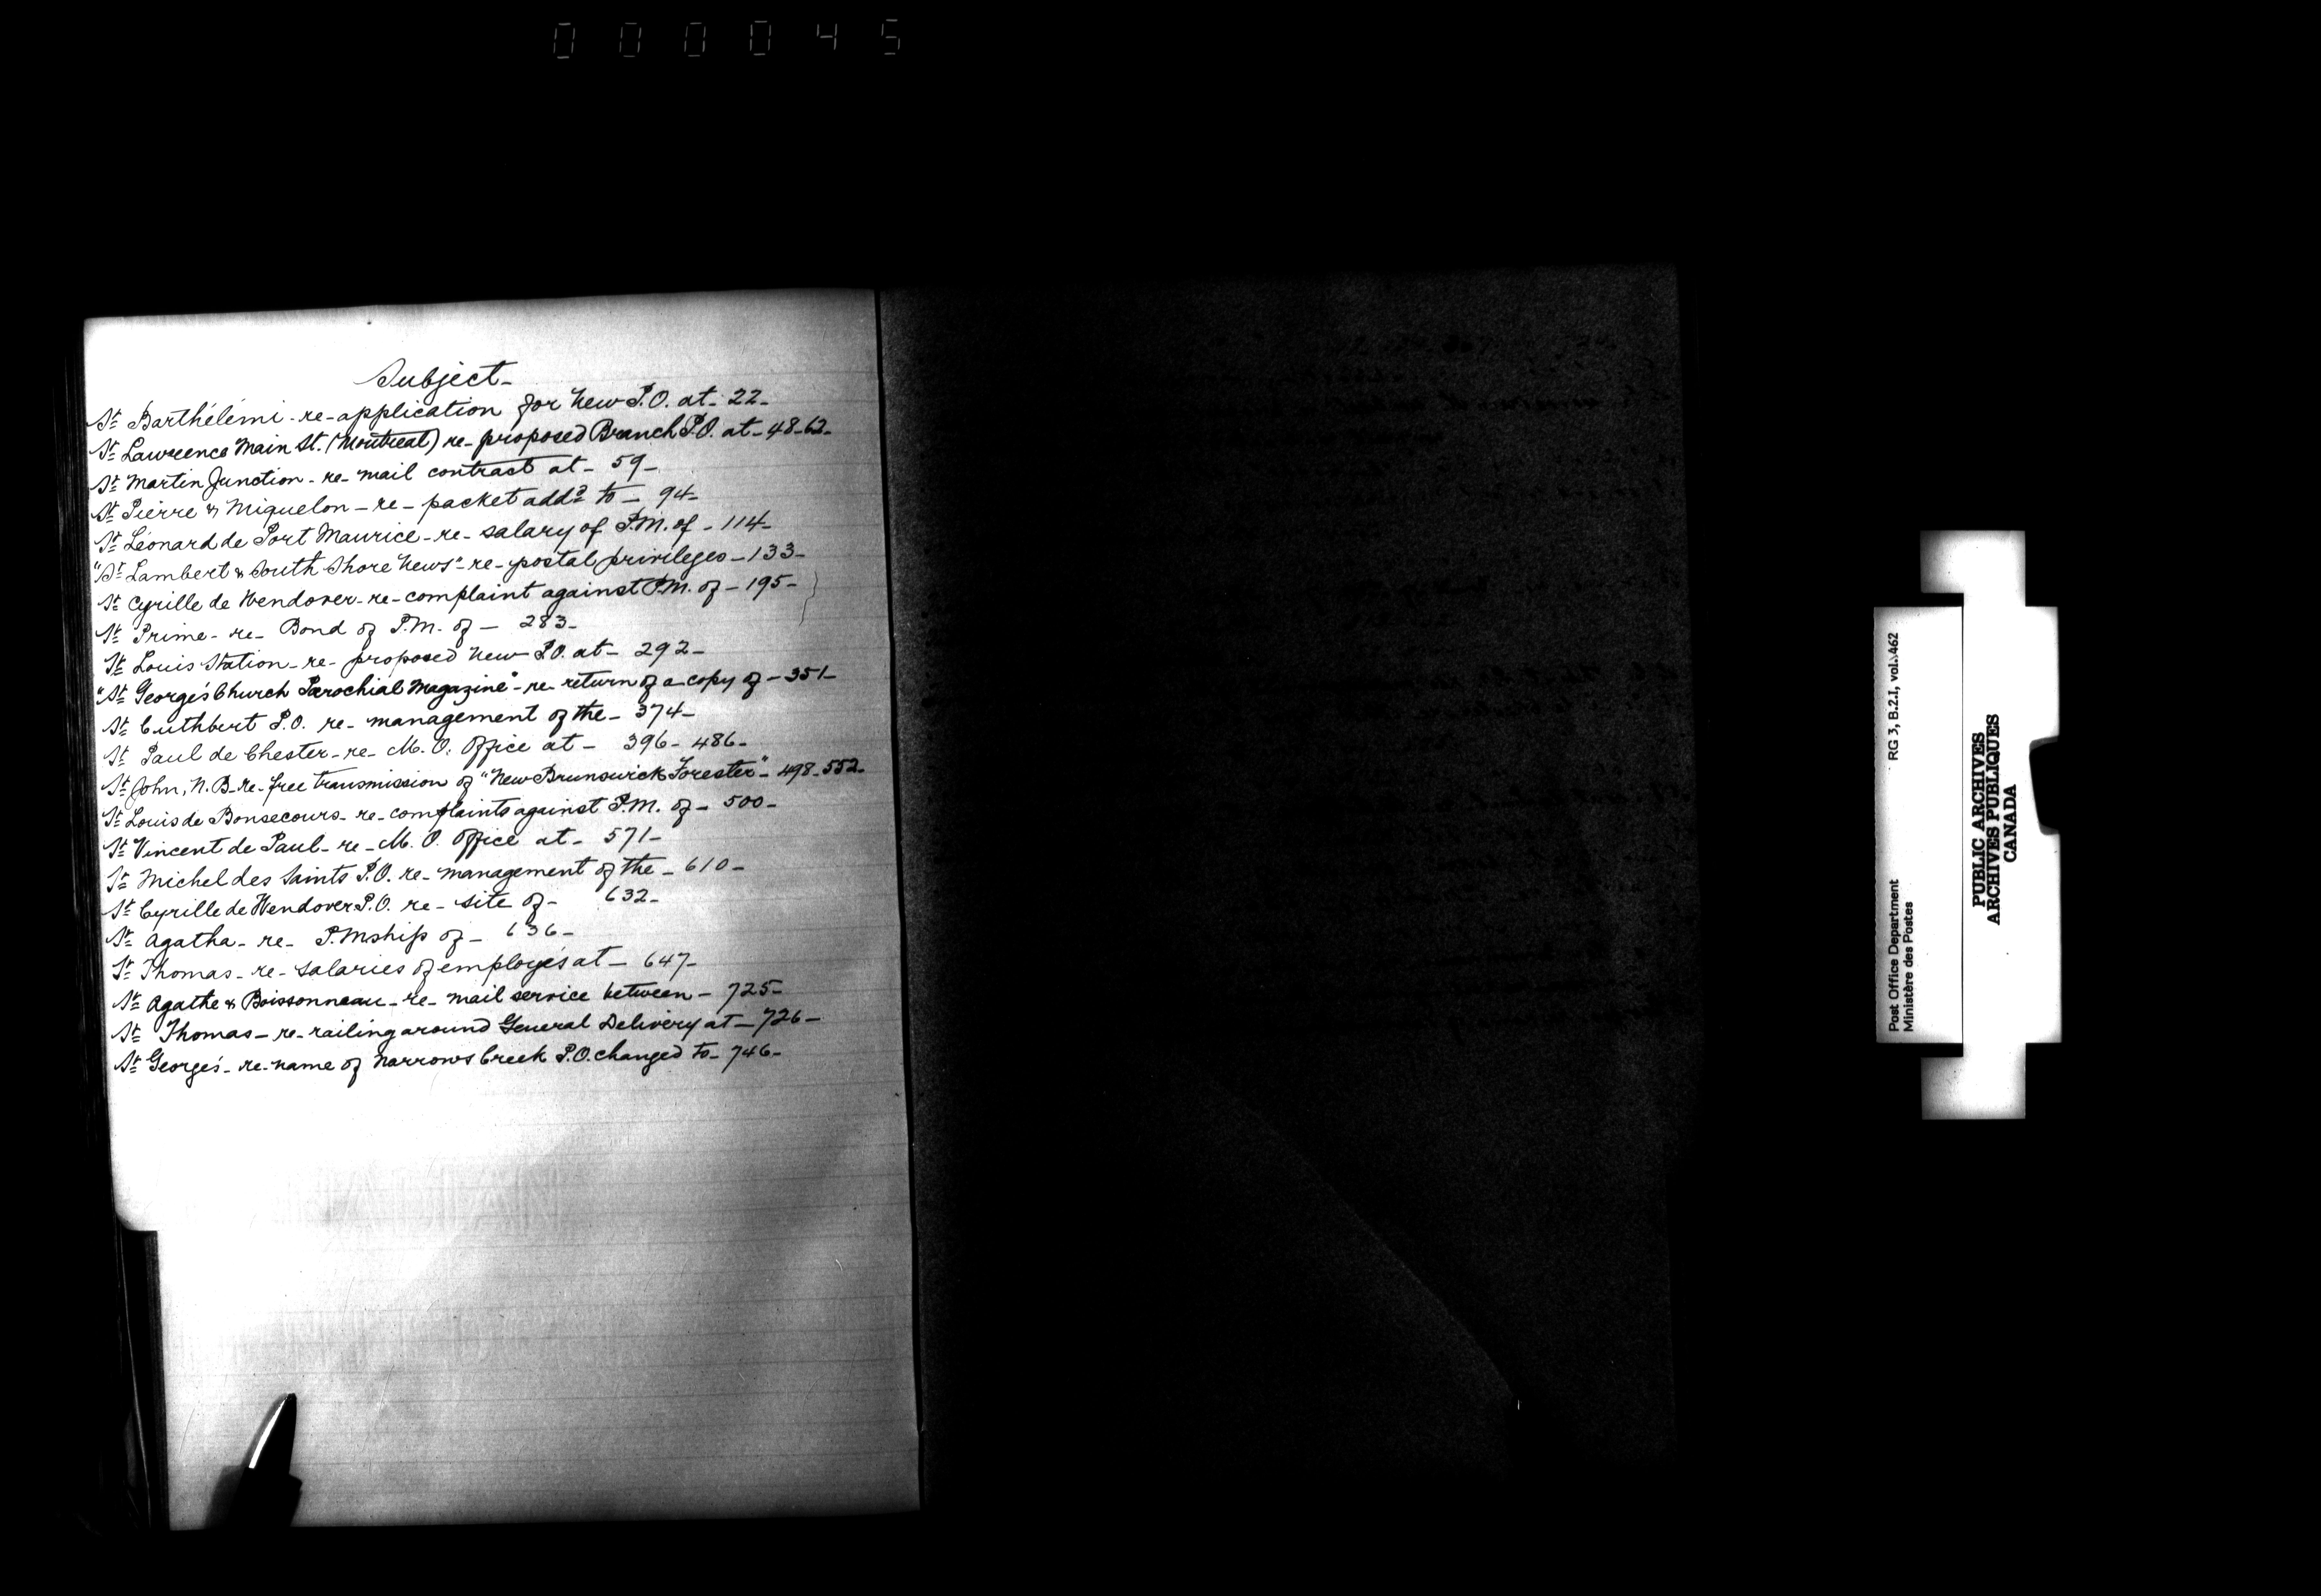 000045
Subject-
St Barthélémi - re - application for New P.O. at - 22 -
St Lawrence Main St. (Montreal) re - proposed Branch P.O. at - 48 - 62 -
St Martin Junction - re - mail contract at - 59 -
St Pierre & Miquelon - re - packet addd to - 94 -
St Léonard de Port Maurice - re - salary of P.M. of - 114 -
"St Lambert & South Shore News" - re - postal privileges - 133 -
St Cyrille de Wendover - re - complaint against P.M. of - 195 -
St Prime - re - Bond of P.M. of - 283 -
St Louis Station - re - proposed New P.O. at - 292 -
"St George's Church Parochial Magazine" - re - return of a copy of - 351 -
St Cuthbert P.O. re - management of the - 374 -
St Paul de Chester - re - M. O. Office at - 396 - 486 -
St John, N.B - re - free transmission of "New Brunswick Forester" - 498 - 552 -
St Louis de Bonsecours - re - complaints against P.M. of - 500 -
St Vincent de Paul - re - M. O. Office at - 571 -
St Michel des Saints P.O. re - management of the - 610 -
St Cyrille de Wendover P.O. re - site of - 632 -
St Agatha - re - P.Mship of - 636 -
St Thomas - re - salaries of employés at - 647 -
St Agathe & Boissonneau - re - mail service between - 725 -
St Thomas - re - railing around General Delivery at - 726 -
St George's - re - name of Narrows Creek P.O. changed to - 746 -
Post Office Department
Ministère des Postes
RG 3, B.2.I, vol. 462
PUBLIC ARCHIVES
ARCHIVES PUBLIQUES
CANADA